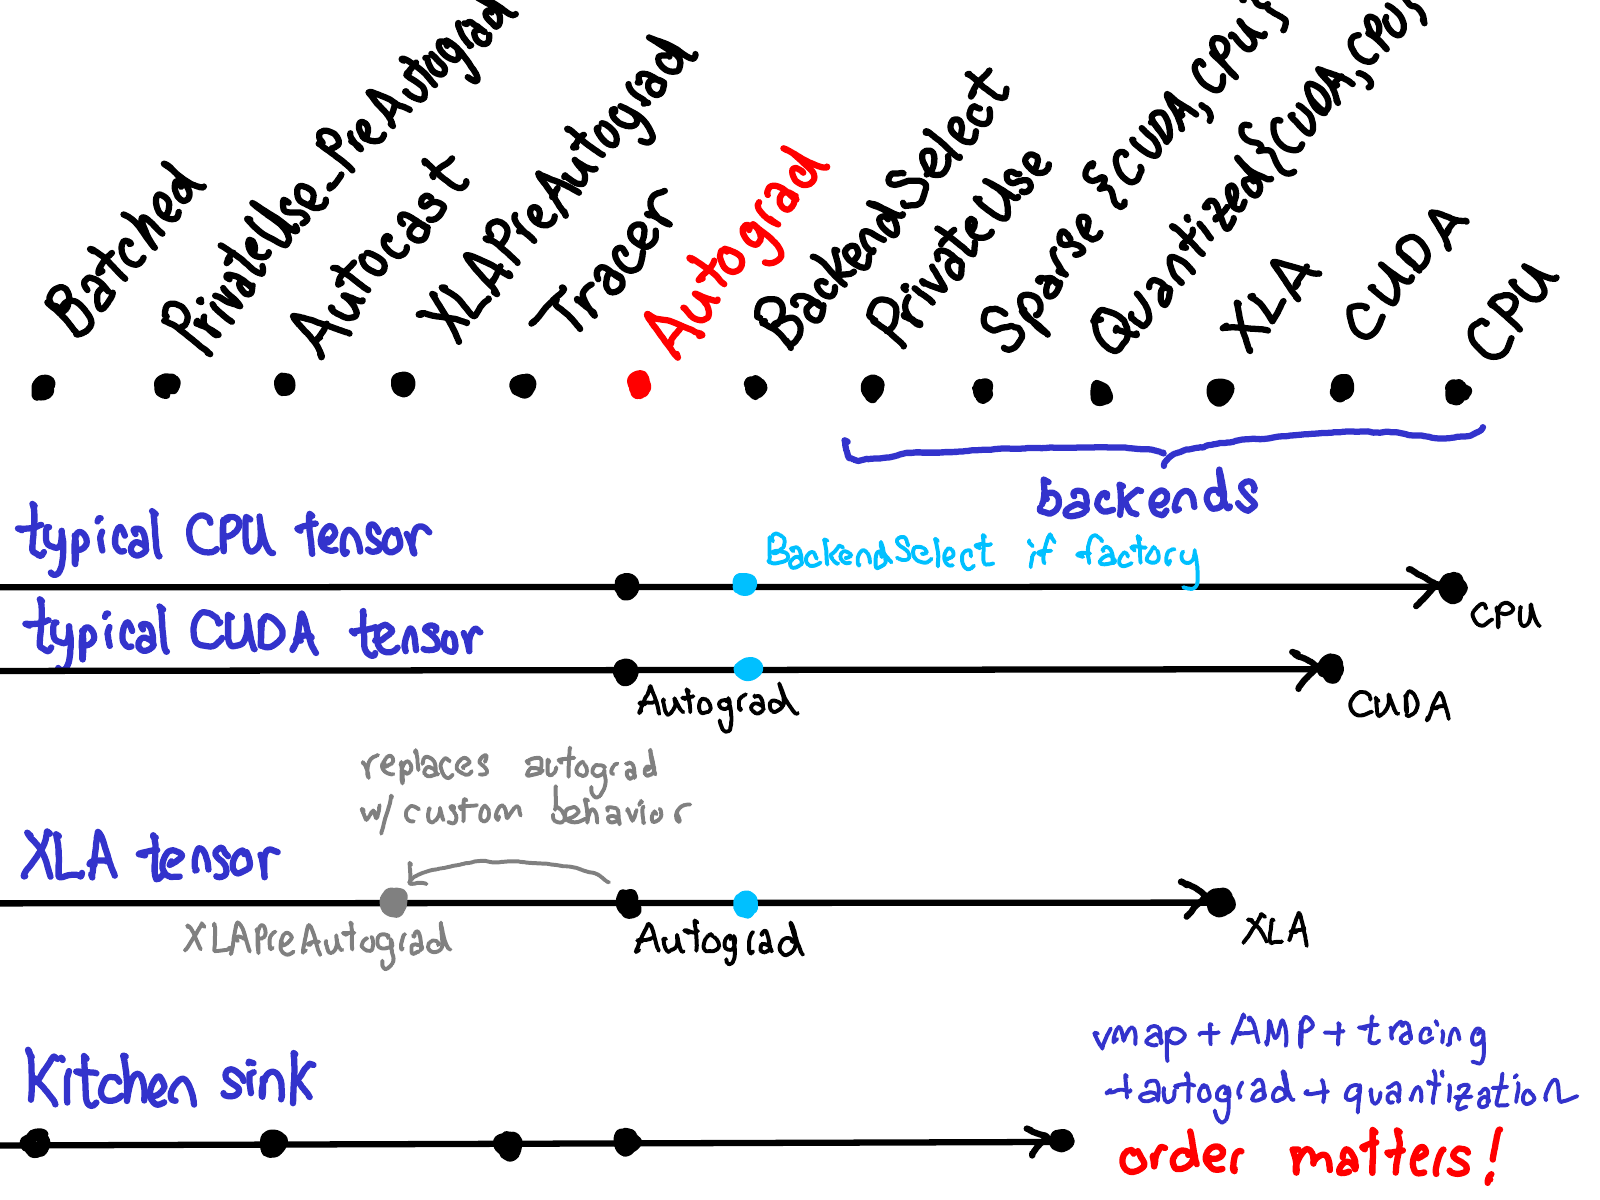 Batched
PrivateUse_PreAutograd
Autocast
XLAPreAutograd
Tracer
Autograd
BackendSelect
PrivateUse
Sparse {CUDA, CPU}
Quantized {CUDA, CPU}
XLA
CUDA
CPU
backends
typical CPU tensor
BackendSelect if factory
CPU
typical CUDA tensor
Autograd
CUDA
replaces autograd
w/ custom behavior
XLA tensor
XLAPreAutograd
Autograd
XLA
Kitchen sink
vmap + AMP + tracing
+ autograd + quantization
order matters!